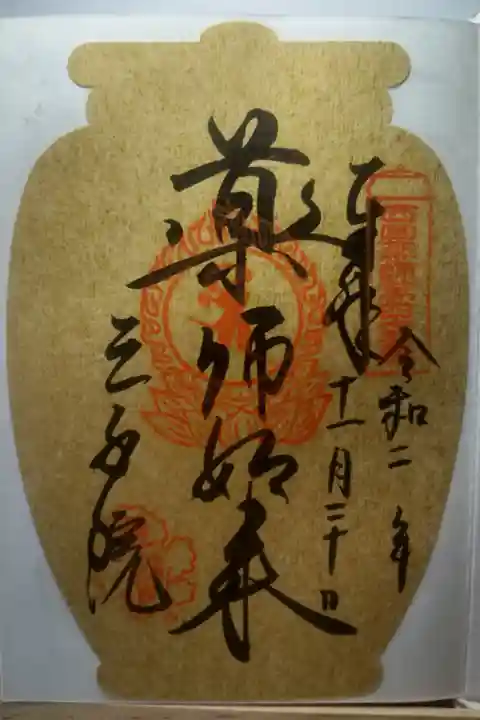 奉拝
令和二年
十一月二十日
薬師如来
三千院